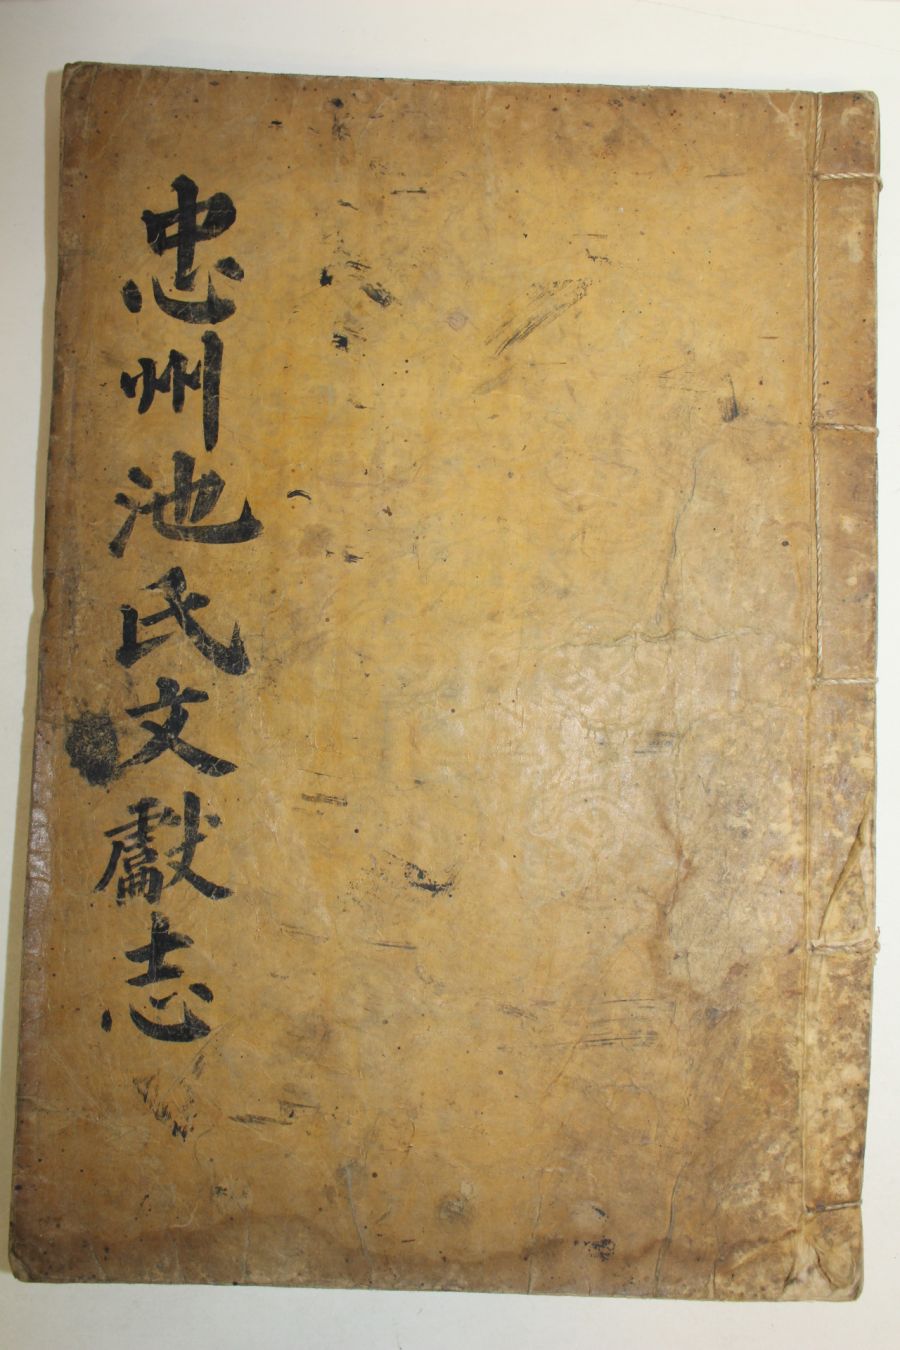 忠州池氏文獻志